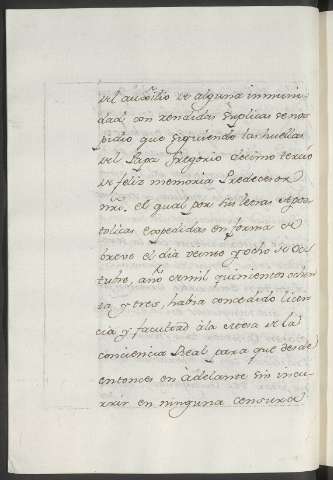 del auxilio de alguna inmuni-
dad con rendidas suplicas se nos
pidio que siguiendo las huellas
del Papa Gregorio decimo tercio
de feliz memoria Predecesor
nrô. el qual por sus letras apos-
tolicas expedidas en forma de
breve el dia veinte y ocho de Oc-
tubre, año de mil quinientos ochen-
ta y tres, habia concedido licen-
cia y facultad à la de la
conciencia Real para que desde
entonces en adelante sin incu-
rrir en ninguna censura